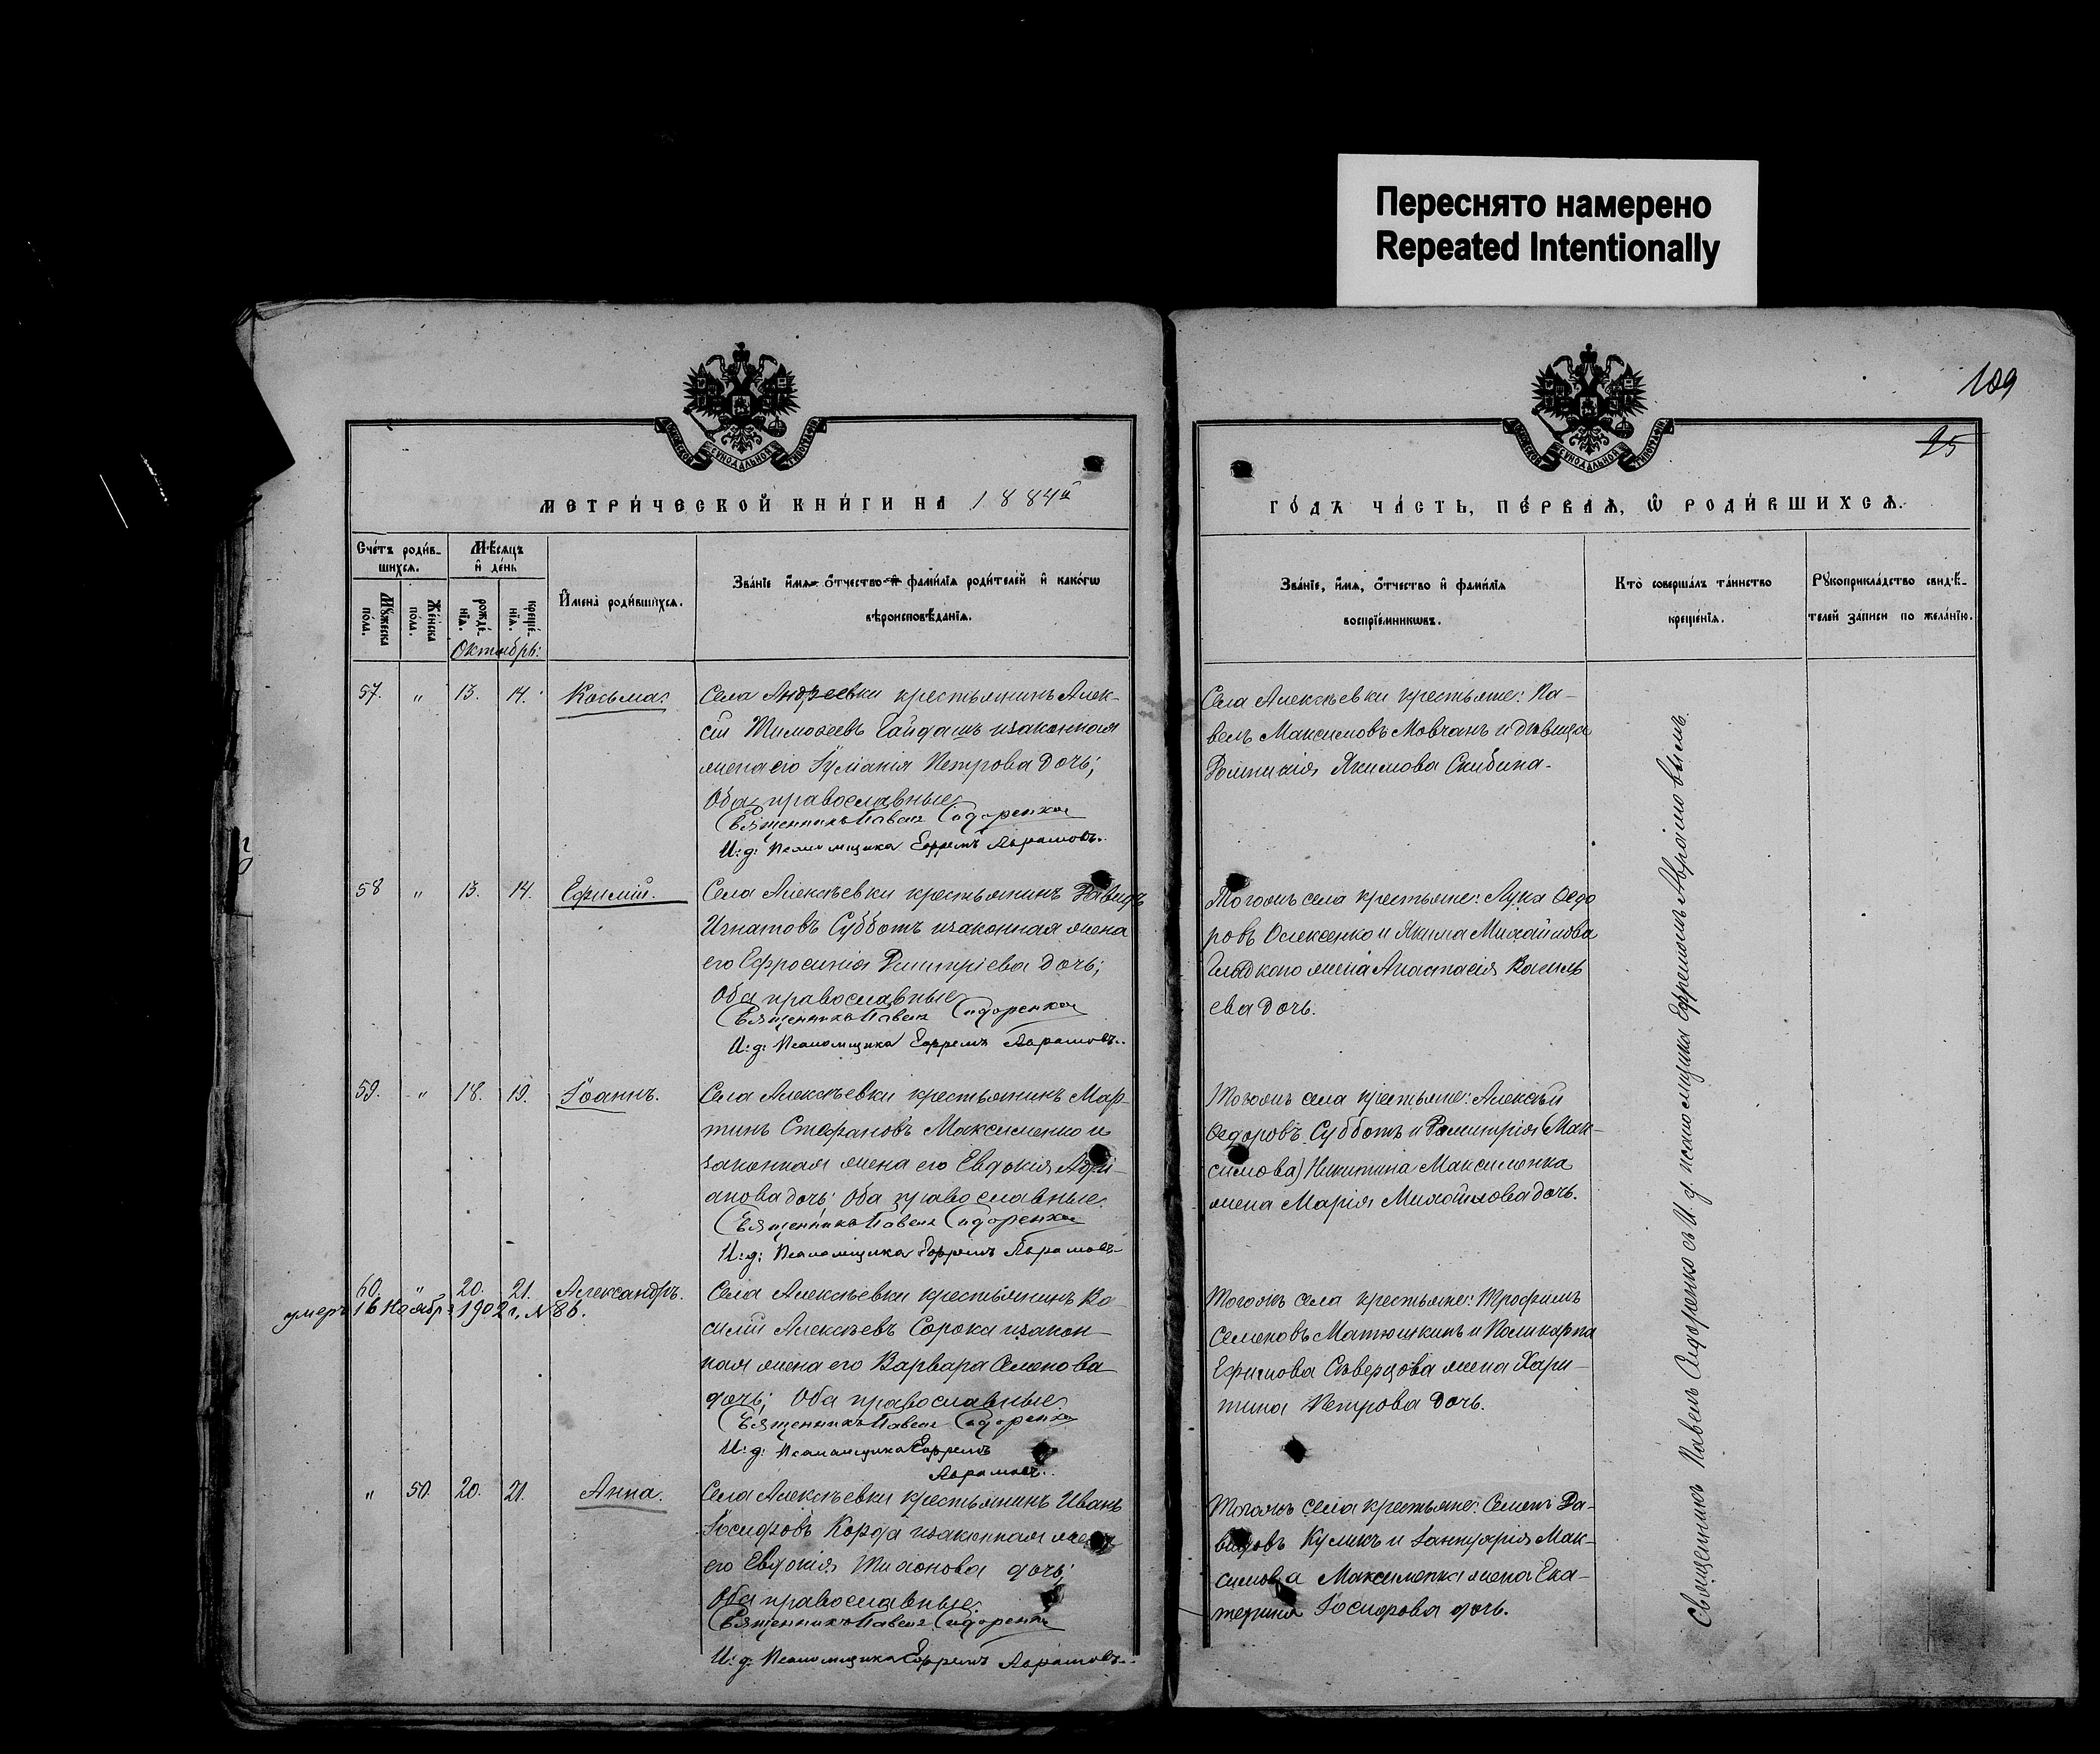 Переснято намерено
Repeated Intentionally
109
25
МЕТРИ́ЧЕСКОЙ КНИ́ГИ НА 1884й
ГО́ДЪ ЧА́СТЬ, ПЕ́РВАѦ, Ѡ҆ РОДИ́ВШИХСѦ.
Сче́тъ роди́в-
шихся.
Мѣ́сяцъ
и҆ де́нь
Мꙋ́жеска
по́ла.
Же́нска
по́ла.
рожде́-
нїя.
креще́-
нїя.
Октябрь:
И҆мена̀ роди́вшихся.
Зва́нїе и҆́мя ѻ҆́тчество и҆ фами́лїя роди́телей и҆ како́гѡ
вѣроисповѣ́данїя.
Зва́нїе, и҆́мя, ѻ҆́тчество и҆ фами́лїя
воспрїе́мникѡвъ.
Кто̀ соверша́лъ та́инство
креще́нїя.
Рꙋкоприкла́дство свидѣ́-
телей за́писи по жела́нїю.
57. " 13. 14. Косьма:
Села Андреевки крестьянинъ Алек-
сій Тимоѳеевъ Гайдашъ изаконная
жена его Петрова дочь;
Оба православные
Священникъ Павелъ Сидоренко
И: д: Псаломщика Ефремъ Аврамовъ.
Села Алексѣевки крестьяне: Па-
велъ Максимовъ Мовчанъ и дѣвица
Якимова Скибина.
58 " 13. 14. Ефимій.
Села Алексѣевки крестьянинъ Давидъ
Игнатовъ Субботъ изаконная жена
его Ефросинія Димитріева дочь;
Оба православные
Священникъ Павелъ Сидоренко
И: д: Псаломщика Ефремъ Аврамовъ.
Тогожъ села крестьяне: Лука Ѳедо
ровъ Олексенко и Якима Михайлова
Гладкого жена Анастасія Василь
ева дочь.
59. " 18. 19. Іоаннъ.
Села Алексѣевки крестьянинъ Мар-
тинъ Стефановъ Максименко и
законная жена его Евдокія Адрі-
анова дочь; Оба православные.
Священникъ Павелъ Сидоренко
И: д: Псаломщика Ефремъ Аврамовъ
Тогожъ села крестьяне: Алексѣй
Ѳедоровъ Субботъ и Димитрія (Мак-
симова) Никитина Максименка
жена Марія Михайлова дочь.
60. " 20. 21. Александръ.
умеръ 16 Ноябр: 1902 г. N 86.
Села Алексѣевки крестьянинъ Ва-
силій Алексѣевъ Сорока изакон-
ная жена его Варвара Семенова
дочь; Оба православные
Священникъ Павелъ Сидоренко
И: д: Псаломщика Ефремъ
Аврамовъ.
Тогожъ села крестьяне: Трофимъ
Семеновъ Матюшкинъ и Поликарпа
Ефимова Сѣверцова жена Хари-
тина Петрова дочь.
" 50. 20. 21. Анна.
Села Алексѣевки крестьянинъ Иванъ
Іосифовъ Корда изаконная жена
его Евдокія Тихонова дочь;
Оба православные.
Священникъ Павелъ Сидоренко
И: д: Псаломщика Ефремъ Аврамовъ.
Тогожъ села крестьяне: Семенъ Да-
видовъ Куликъ и Іаннуарія Мак-
симова Максименка жена Ека-
терина Іосифова дочь.
Священникъ Павелъ Сидоренко съ И. д. псаломщика Ефремомъ Авраамовымъ.